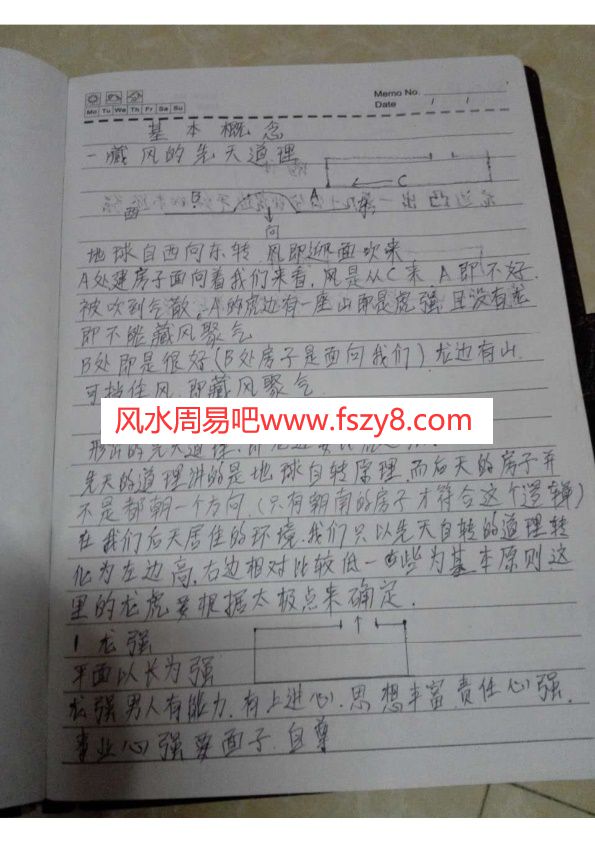 Memo No.
Mo Tu We Th Fr Sa Su
Date / /
基本概念
一 藏风的先天道理
C
西 B A 东
向
地球自西向东转,风即迎面吹来
A处建房子面向着我们来看,风是从C来 A即不好.
被吹到气散,A的虎边有一座山即是虎强 且没有龙
即不能藏风聚气
B处即是很好(B处房子是面向我们)龙边有山
可挡住风.即藏风聚气.
风水周易吧www.fszy8.com
形山的先天道理
先天的道理讲的是地球自转原理,而后天的房子并
不是都朝一个方向,(只有朝南的房子才符合这个逻辑)
在我们后天居住的环境.我们只以先天自转的道理转
化为左边高,右边相对比较低一些为基本原则 这
里的龙虎要根据太极点来确定.
1 龙强
平面以长为强
龙强男人有能力.有上进心.思想丰富.责任心强.
事业心强 要面子.自尊